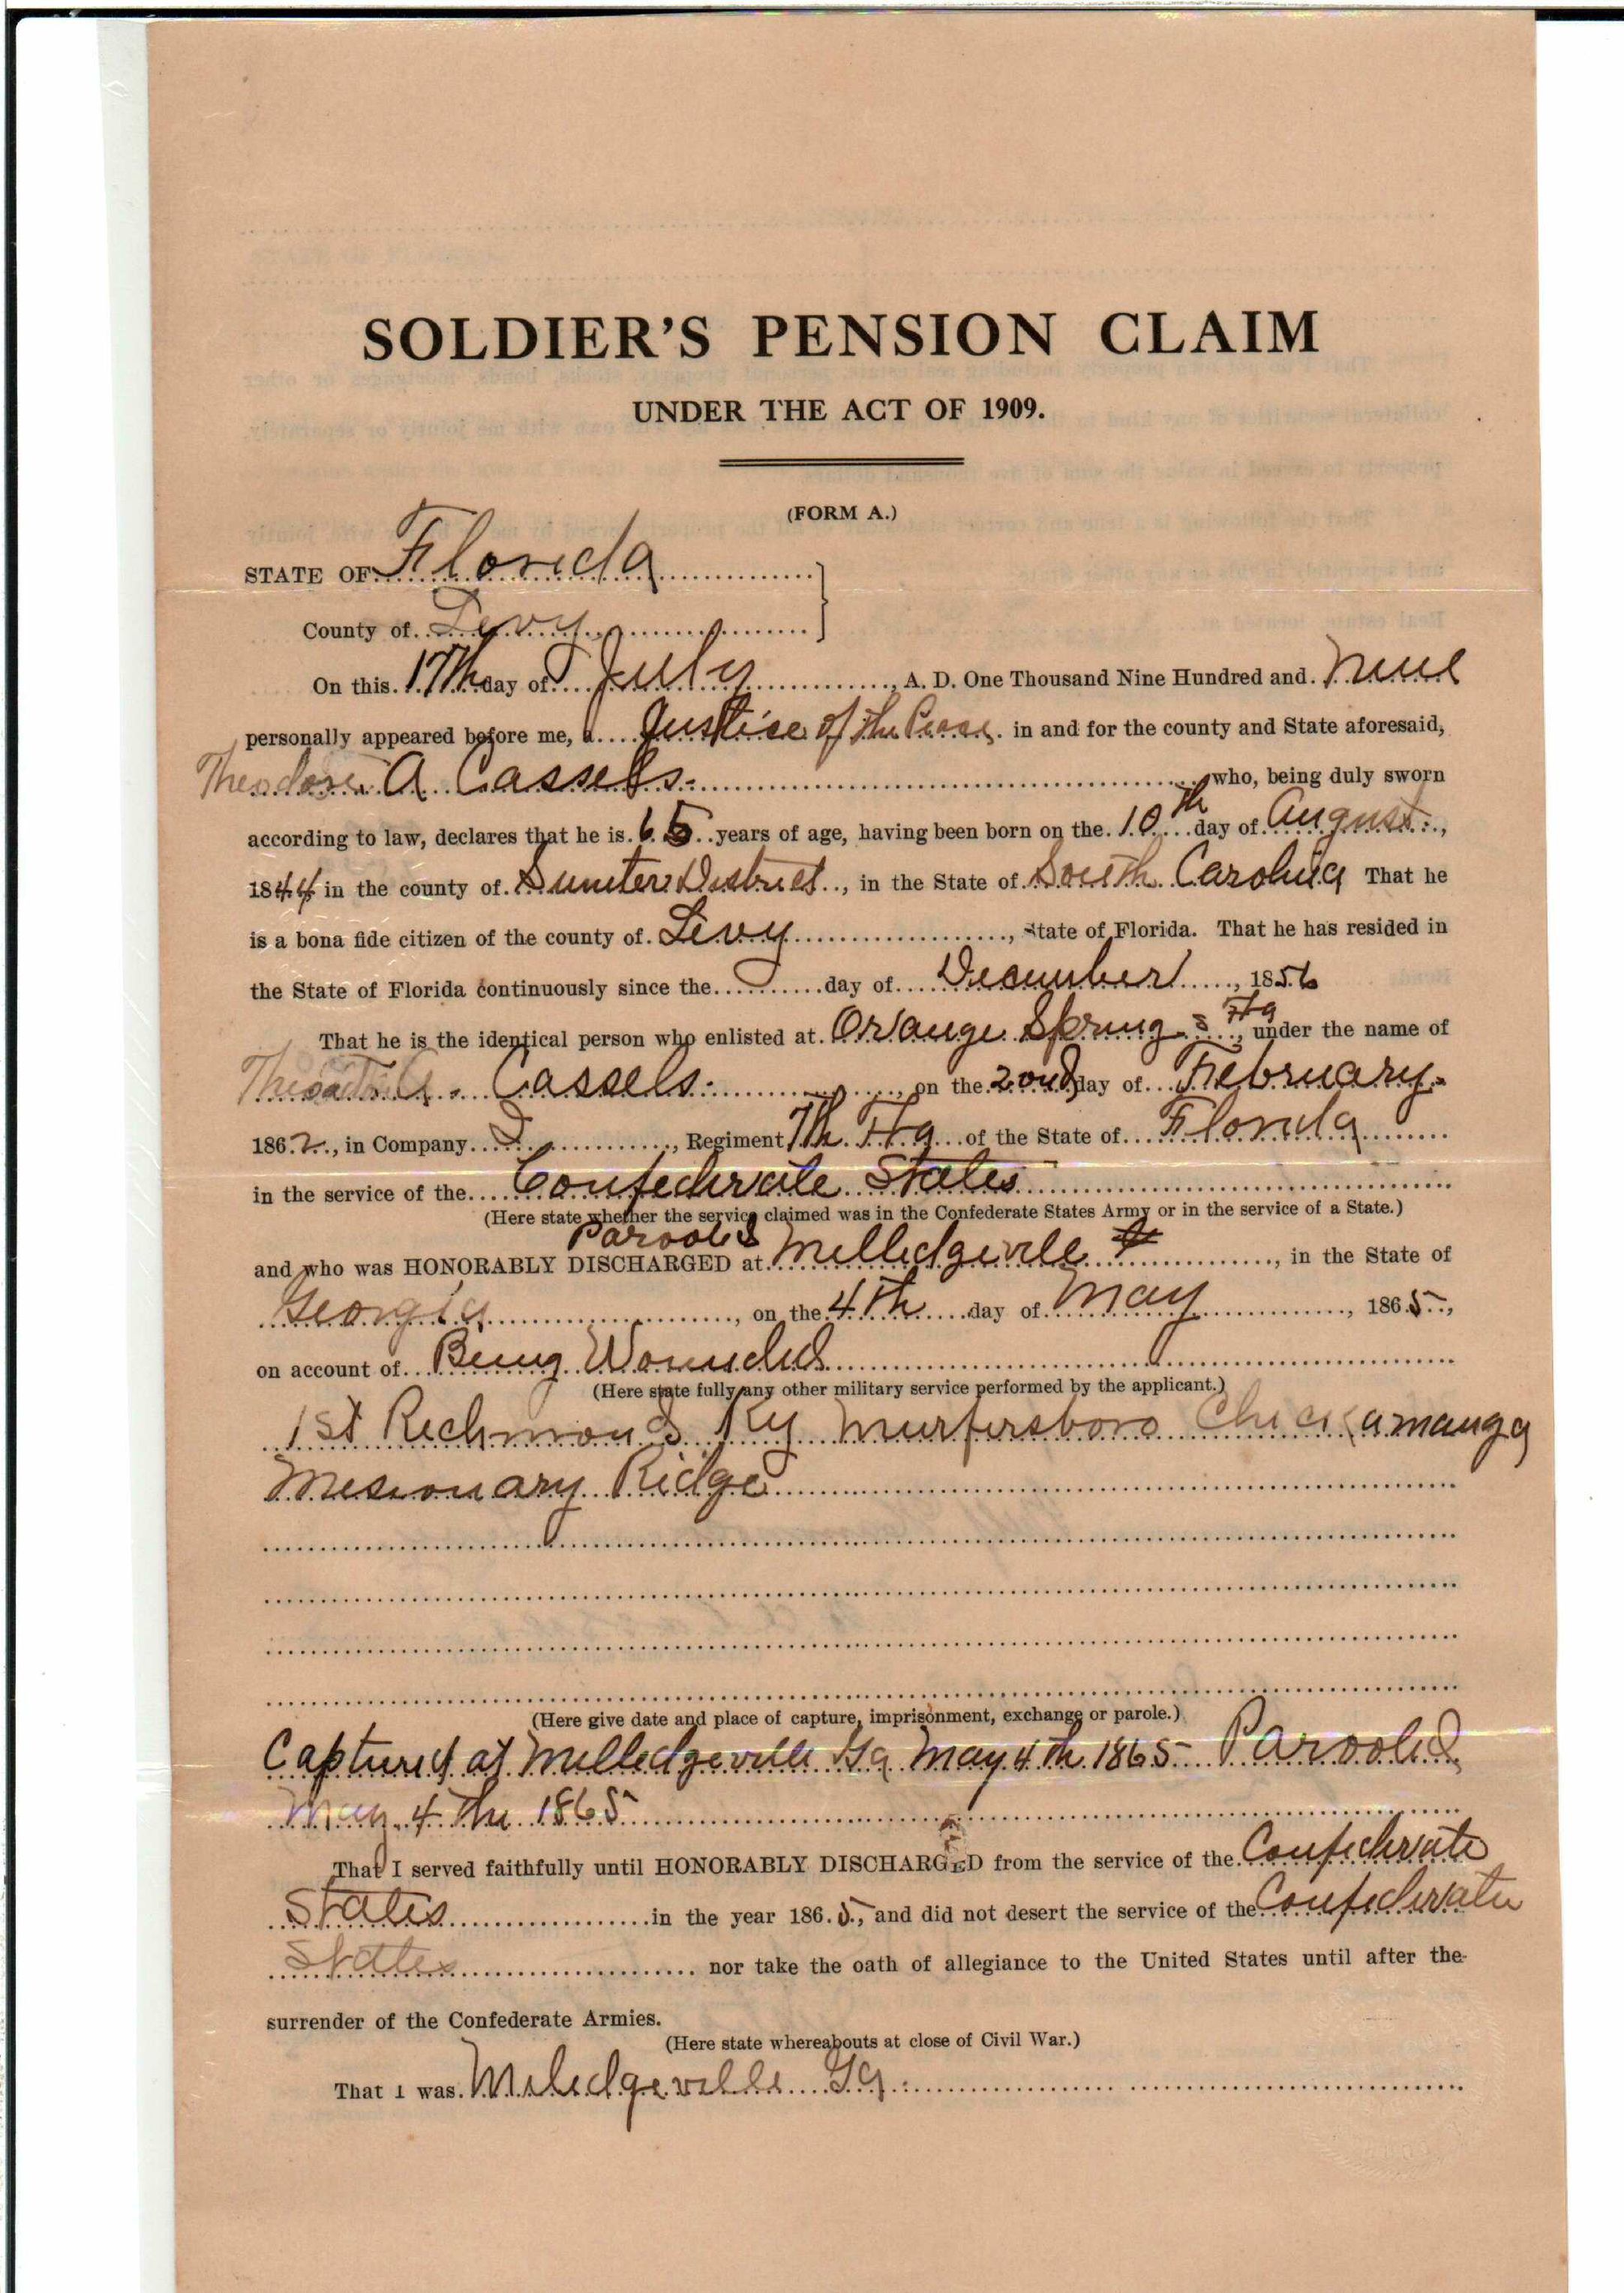 SOLDIER'S PENSION CLAIM
UNDER THE ACT OF 1909.
(FORM A.)
STATE OF Florida
County of Levy
On this 17th day of July, A. D. One Thousand Nine Hundred and nine
personally appeared before me, a Justice of the Peace in and for the county and State aforesaid,
Theodore A Cassels who, being duly sworn
according to law, declares that he is 65 years of age, having been born on the 10th day of August,
1844 in the county of Sumter District, in the State of South Carolina That he
is a bona fide citizen of the county of Levy, State of Florida. That he has resided in
the State of Florida continuously since the day of December, 1856
That he is the identical person who enlisted at Orange Springs Fla, under the name of
A. Cassels, on the 2ond day of February
1862, in Company, Regiment 7th Fla of the State of Florida
in the service of the Confederate States
(Here state whether the service claimed was in the Confederate States Army or in the service of a State.)
Parooled
and who was HONORABLY DISCHARGED at Milledgeville, in the State of
Georgia, on the 4th day of May, 1865,
on account of Being Wounded
(Here state fully any other military service performed by the applicant.)
1st Richmond Ky Murfersboro Chickamauga
Mesionary Ridge
(Here give date and place of capture, imprisonment, exchange or parole.)
Captured at Milledgeville Ga May 4th 1865 Parooled
May 4th 1865
That I served faithfully until HONORABLY DISCHARGED from the service of the Confederate
States in the year 1865, and did not desert the service of the Confederate
States nor take the oath of allegiance to the United States until after the
surrender of the Confederate Armies.
(Here state whereabouts at close of Civil War.)
That I was Miledgeville Ga